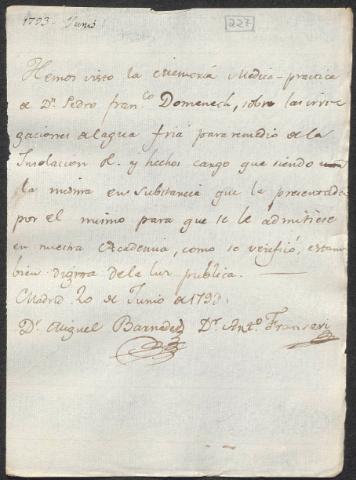 1793. Junio
227
Hemos visto la Memoria Medico-practica
de Dn. Pedro Franco Domenech, sobre las irri-
gaciones de lagua fria para remedio de la
Insolacion &. y hechos cargo que siendo
la misma en substancia que la presentada
por el mismo para que se le admitiese
en nuestra Academia, como se verifió, es tam-
bien digna de la luz publica.
Madrid 20 de Junio de 1793.
Dr. Miguel Barnades Dr. Anto. Franseri